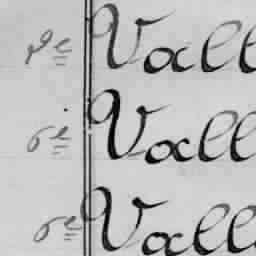 9e Vall
6e Vall
6e Vall